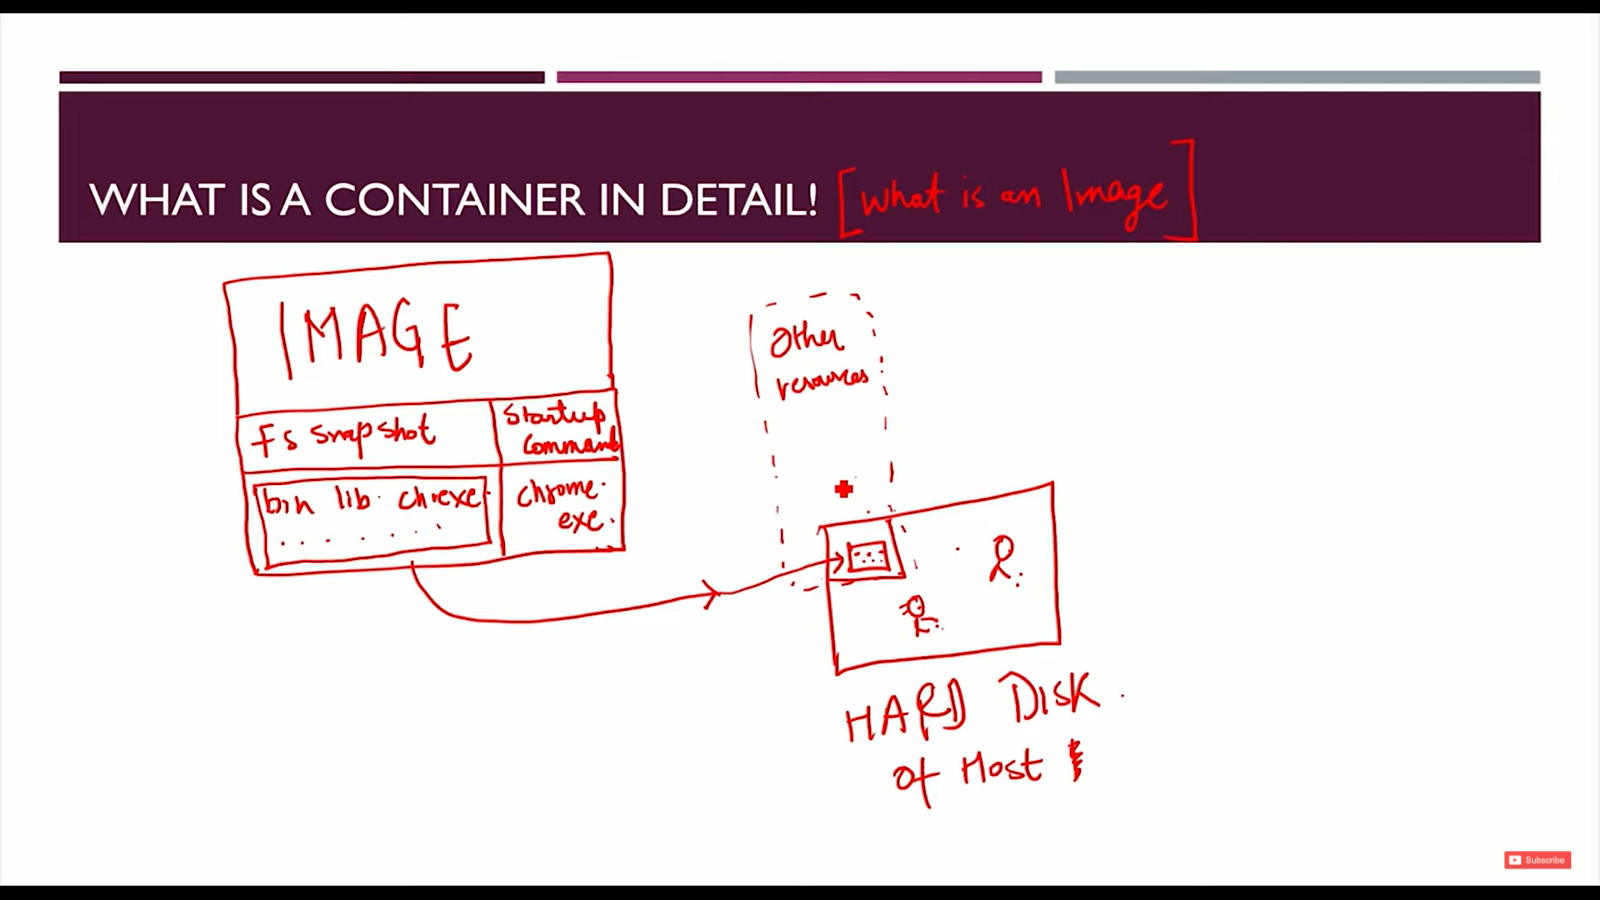 WHAT IS A CONTAINER IN DETAIL! [What is an Image]
IMAGE
FS snapshot
Startup
Command
bin lib. chrexe.
chrome.
exe.
Other
resources
HARD DISK.
of Host
Subscribe